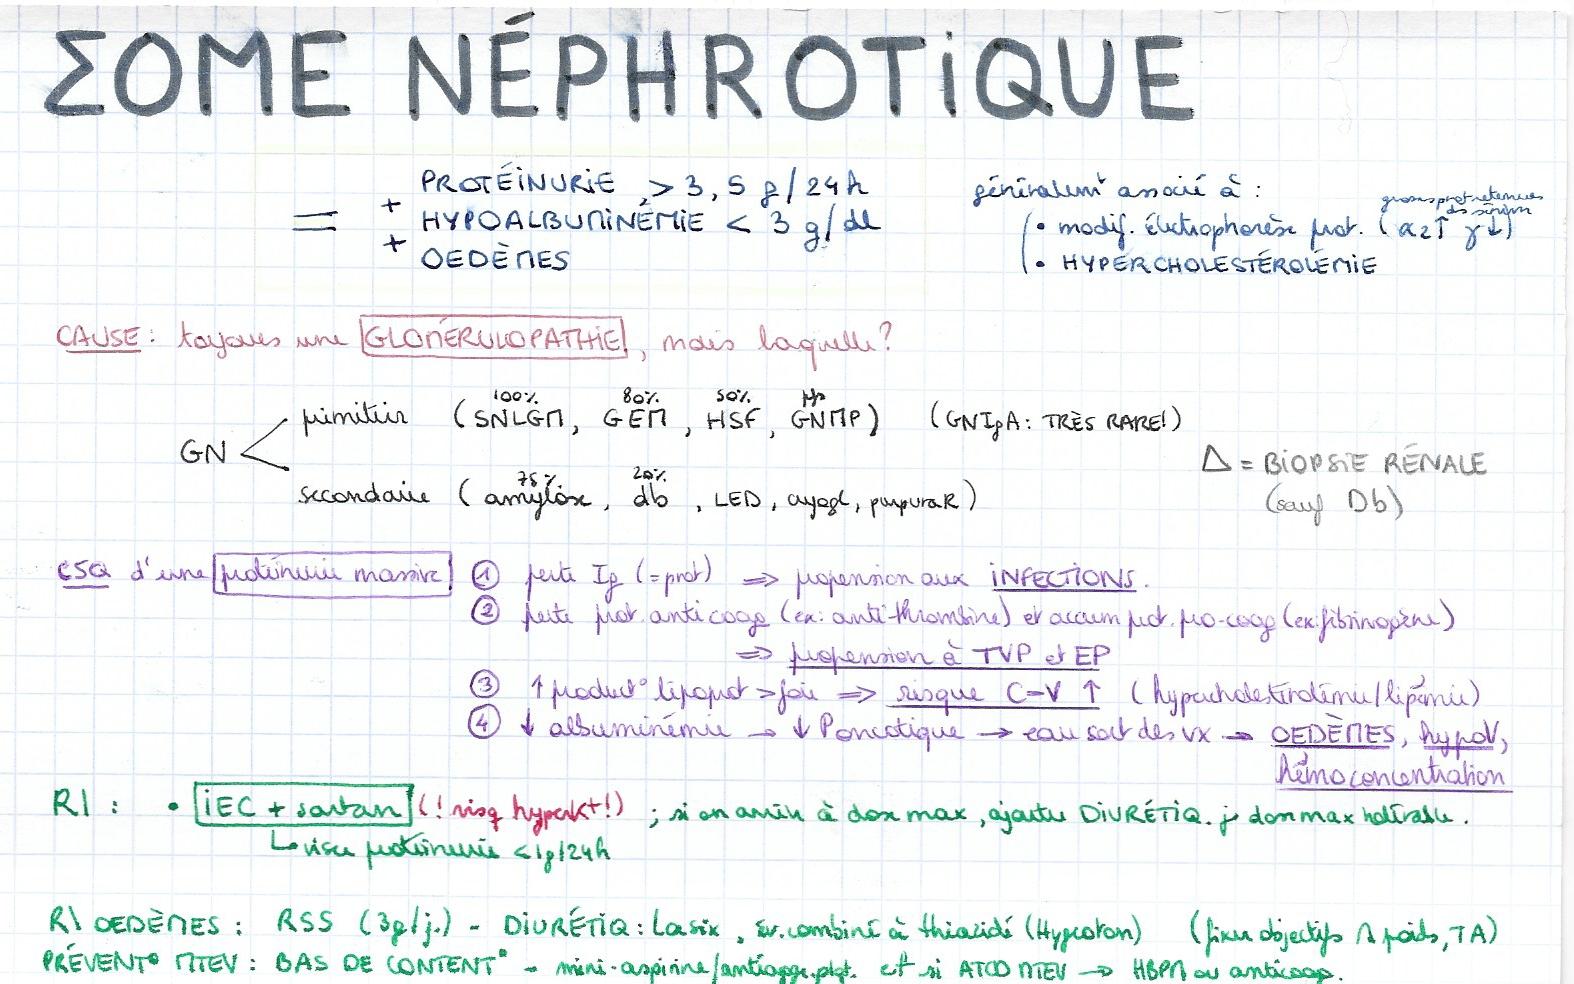 ΣOME NÉPHROTIQUE
PROTÉINURIE > 3,5 g/24h
= + HYPOALBUMINÉMIE < 3 g/dl
+ OEDÈMES
généralemt associé à :
grosses prot retenues ds sérum
• modif. électrophorèse prot. (α2↑ γ↓)
• HYPERCHOLESTÉROLÉMIE
CAUSE : toujours une GLOMÉRULOPATHIE, mais laquelle ?
100% 80% 50%
GN primitive (SNLGM, GEM, HSF, GNMP) (GNIgA : TRÈS RARE!)
75% 20%
secondaire (amylose, db, LED, cryogl, purpura R)
Δ = BIOPSIE RÉNALE
(sauf Db)
CSQ d'une protéinurie massive ① perte Ig (= prot) => propension aux INFECTIONS.
② perte prot. anticoag (ex: anti-thrombine) et accum prot. pro-coag (ex: fibrinogène)
=> propension à TVP et EP
③ ↑ product° lipoprot > foie => risque C-V ↑ (hypercholestérolémie/lipémie)
④ ↓ albuminémie → ↓ Poncotique → eau sort des vx → OEDÈMES, hypoV,
hémoconcentration
R/ : • IEC + sartan (! risq hyperK+!) ; si on arrive à dose max, ajouter DIURÉTIQ. jq dose max tolérable.
↳ visée protéinurie < 1g/24h
R/ OEDÈMES : RSS (3g/j.) - DIURÉTIQ : Lasix, év. combiné à thiazidé (Hygroton) (fixer objectifs poids, TA)
PRÉVENT° MTEV : BAS DE CONTENT° - mini-aspirine/antiaggr.plqt. et si ATCD MTEV → HBPM ou anticoag.